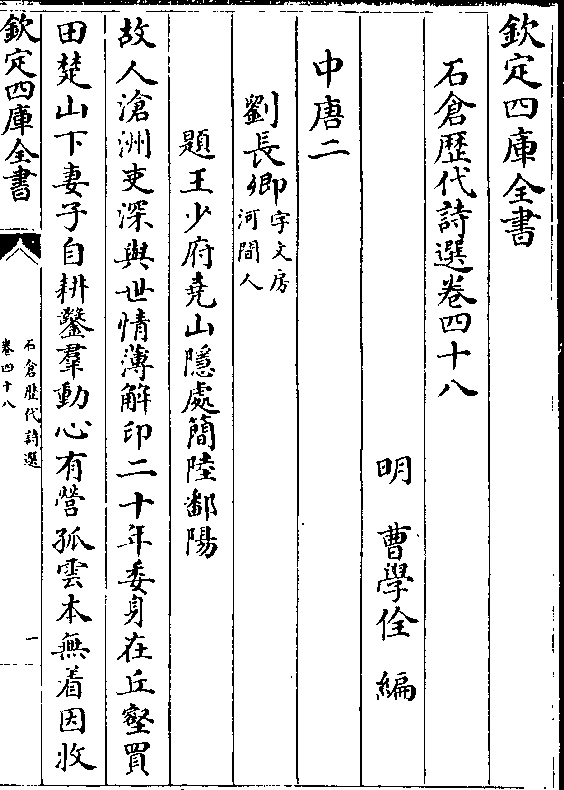 欽定四庫全書
石倉歴代詩選卷四十八
明 曹學佺 編
中唐二
劉長卿字文房河間人
題王少府堯山隱處簡陸鄱陽
故人滄洲吏深與世情薄解印二十年委身在丘壑買
田楚山下妻子自耕鑿羣動心有營孤雲本無着因收
欽定四庫全書
石倉歴代詩選
卷四十八
一